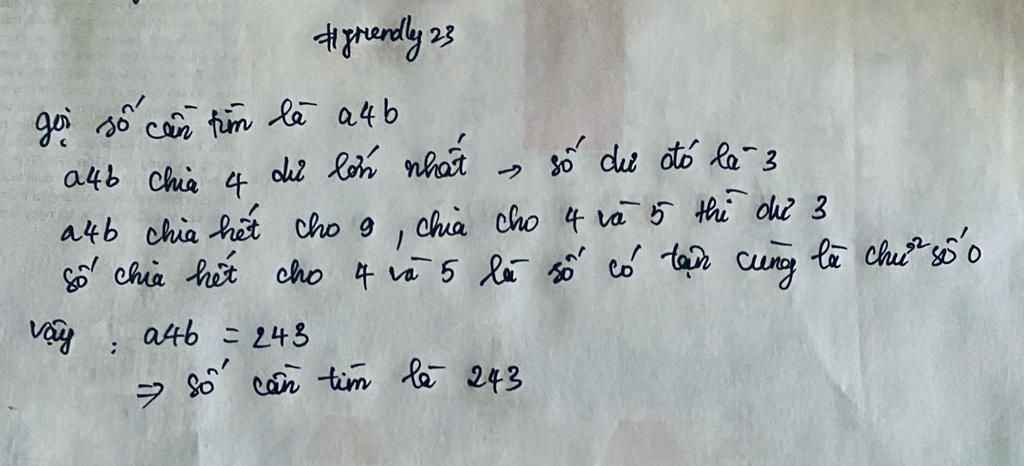 #friendly 23
gọi số cần tìm là a4b
a4b chia 4 dư lớn nhất → số dư đó là 3
a4b chia hết cho 9, chia cho 4 và 5 thì dư 3
số chia hết cho 4 và 5 là số có tận cùng là chữ số 0
vậy : a4b = 243
⇒ số cần tìm là 243